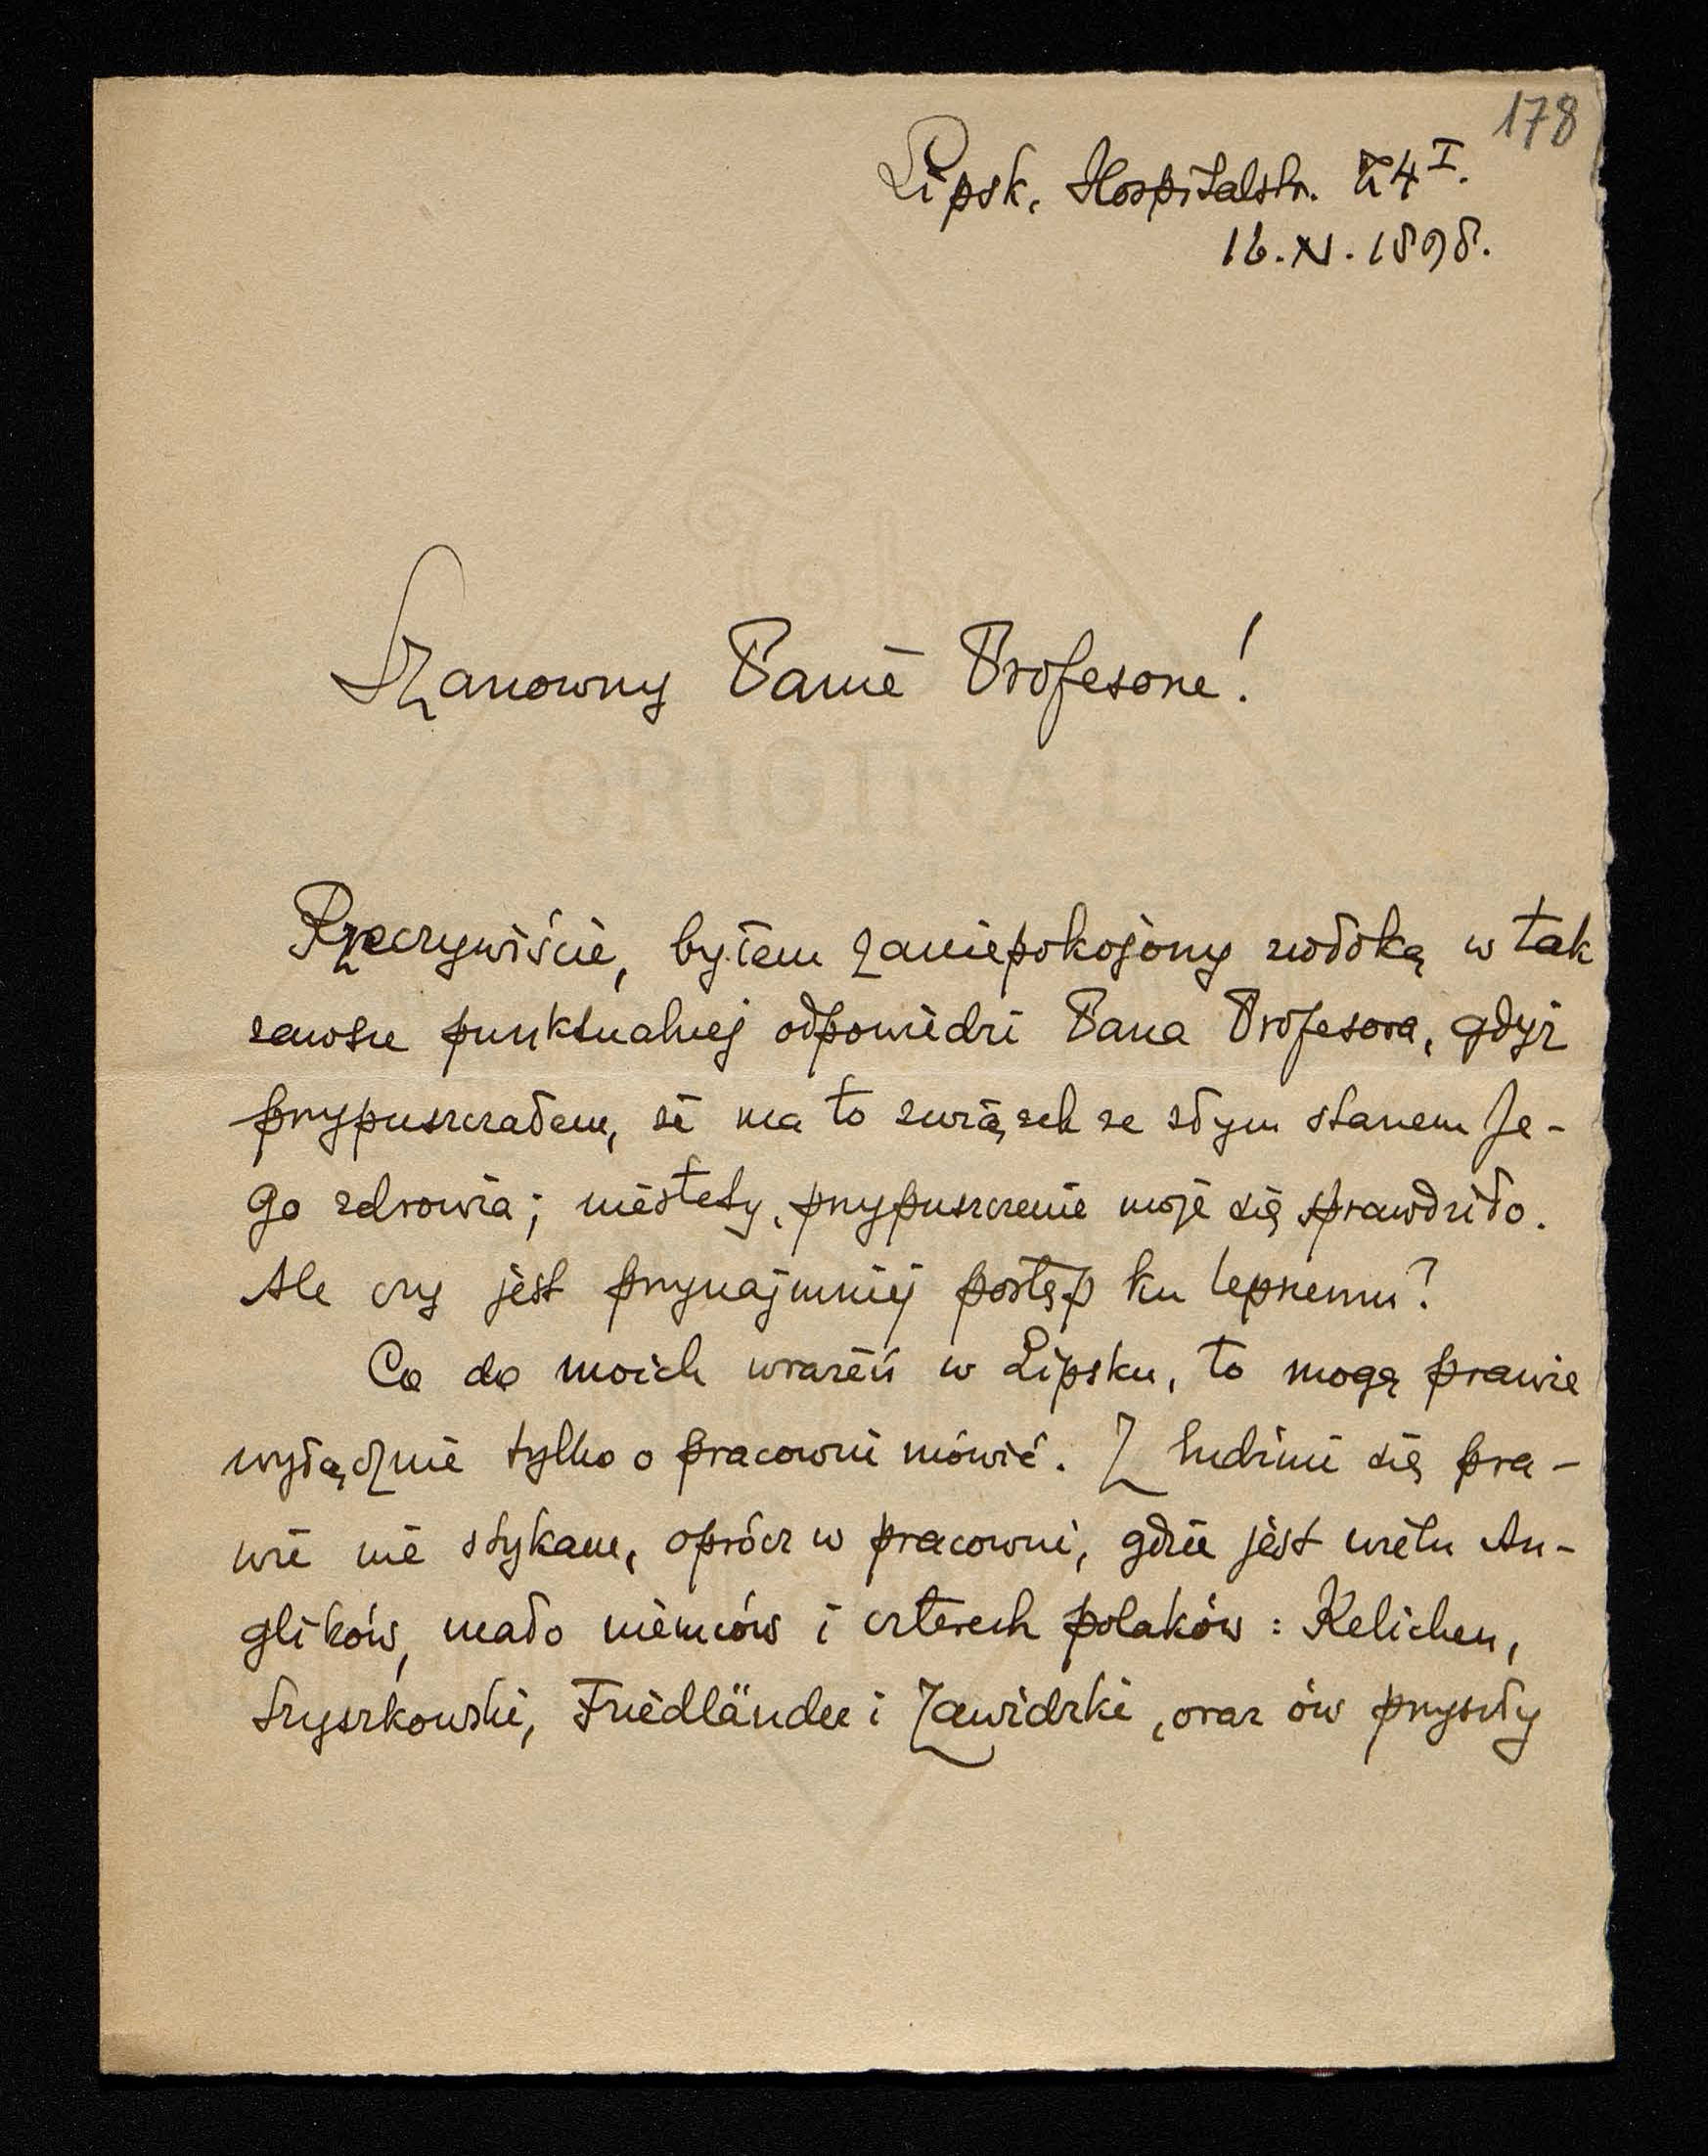 178
Lipsk, Hospitalstr. 4 I.
16.XI.1898.
Szanowny Panie Profesorze!
The
ORIGINAL
Rzeczywiście, byłem zaniepokojony zwłoką w tak
zawsze punktualnej odpowiedzi Pana Profesora, gdyż
przypuszczałem, że ma to związek ze złym stanem Je-
go zdrowia; niestety, przypuszczenie moje się sprawdziło.
Ale czy jest przynajmniej postęp ku lepszemu?
Co do moich wrażeń w Lipsku, to mogę prawie
wyłącznie tylko o pracowni mówić. Z ludźmi się pra-
wie nie stykam, oprócz w pracowni, gdzie jest wielu An-
glików, mało niemców i czterech polaków: Kelichen,
Szyszkowski, Friedländer i Zawidzki, oraz ów przyszły